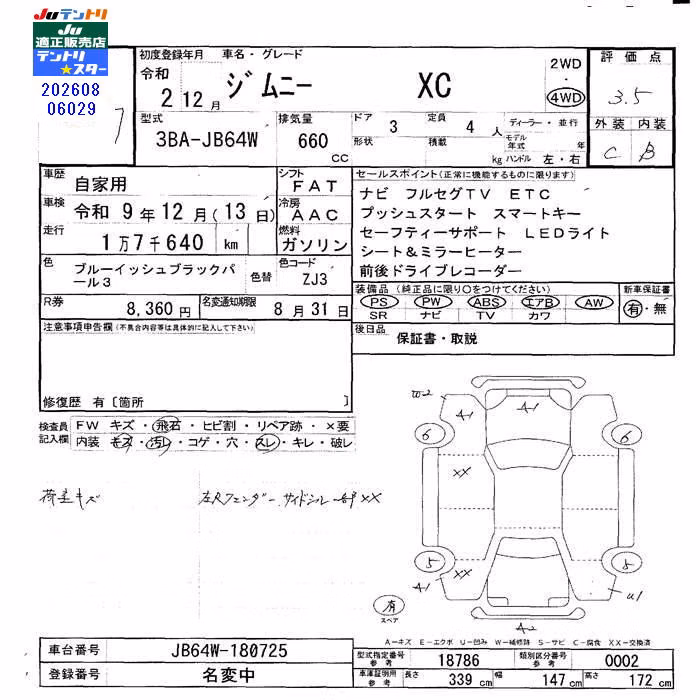 Juテントリ
Ju
適正販売店
テントリ
★スター
202608
06029
7
初度登録年月 車名・グレード
令和
2 12月 ジムニー XC
2WD
・
4WD
評価点
3.5
型式 3BA-JB64W
排気量 660 cc
ドア 3 定員 4 人
形状 積載 kg
ディーラー・並行
モデル年式 年
ハンドル 左・右
外装 内装
C B
車歴 自家用
車検 令和 9年12月(13日)
走行 1万7千640 km
シフト FAT
冷房 AAC
燃料 ガソリン
色 ブルーイッシュブラックパール3
色替
色コード ZJ3
R券 8,360円
名変通知期限 8月31日
セールスポイント(正常に機能するものに限ります)
ナビ フルセグTV ETC
プッシュスタート スマートキー
セーフティーサポート LEDライト
シート&ミラーヒーター
前後ドライブレコーダー
装備品(純正品に限り○をつけてください)
PS PW ABS エアB AW
SR ナビ TV カワ
新車保証書
有・無
後日品 保証書・取説
注意事項申告欄(不具合内容等は具体的に記入して下さい)
修復歴 有〔箇所 〕
検査員記入欄
FW キズ・飛石・ヒビ割・リペア跡・×要
内装 キズ・汚レ・コゲ・穴・スレ・キレ・破レ
荷室キズ
左Rフェンダー、サイドシル一部XX
W-2
A-1
A-1
6
6
XX
5
5
A-1
XX
U1
A-2
有
スペア
A-キズ E-エクボ U-凹み W-補修跡 S-サビ C-腐食 XX-交換済
車台番号 JB64W-180725
登録番号 名変中
型式指定番号 参考 18786
類別区分番号 参考 0002
車庫証明用 参考 長さ 339cm 幅 147cm 高さ 172cm